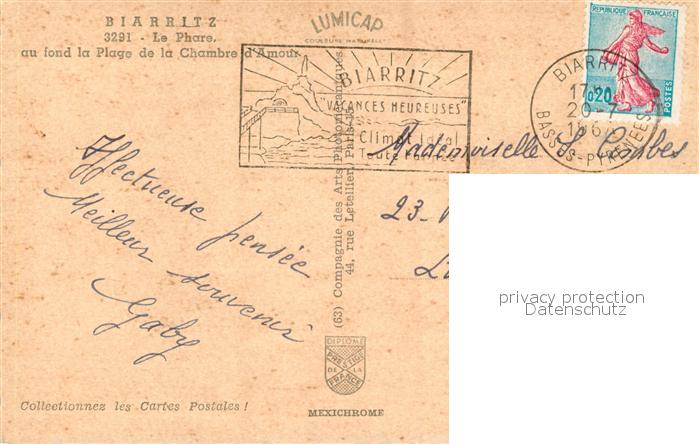 BIARRITZ
3291 - Le Phare.
au fond la Plage de la Chambre d'Amour
LUMICAP
COULEURS NATURELLES
BIARRITZ
"VACANCES HEUREUSES"
Climat Idéal
Toute
REPUBLIQUE FRANÇAISE
0,20
POSTES
BIARRITZ
17
20-7
BASSES-PYRENEES
Mademoiselle S. Combes
23-
Affectueuse pensée
Meilleur souvenir
Gaby
(63) Compagnie des Arts Photomécaniques
44, rue Letellier, Paris-15
privacy protection
Datenschutz
DIPLOME
PRESTIGE
DE LA
FRANCE
Collectionnez les Cartes Postales !
MEXICHROME